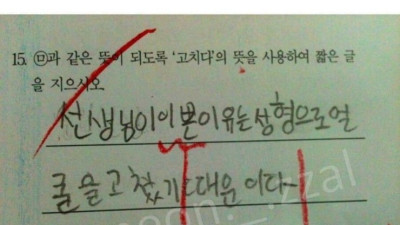 15. ㉤과 같은 뜻이 되도록 '고치다'의 뜻을 사용하여 짧은 글
을 지으시오.
선생님이 이쁜이유는 성형으로 얼
굴을 고쳤기 때문이다